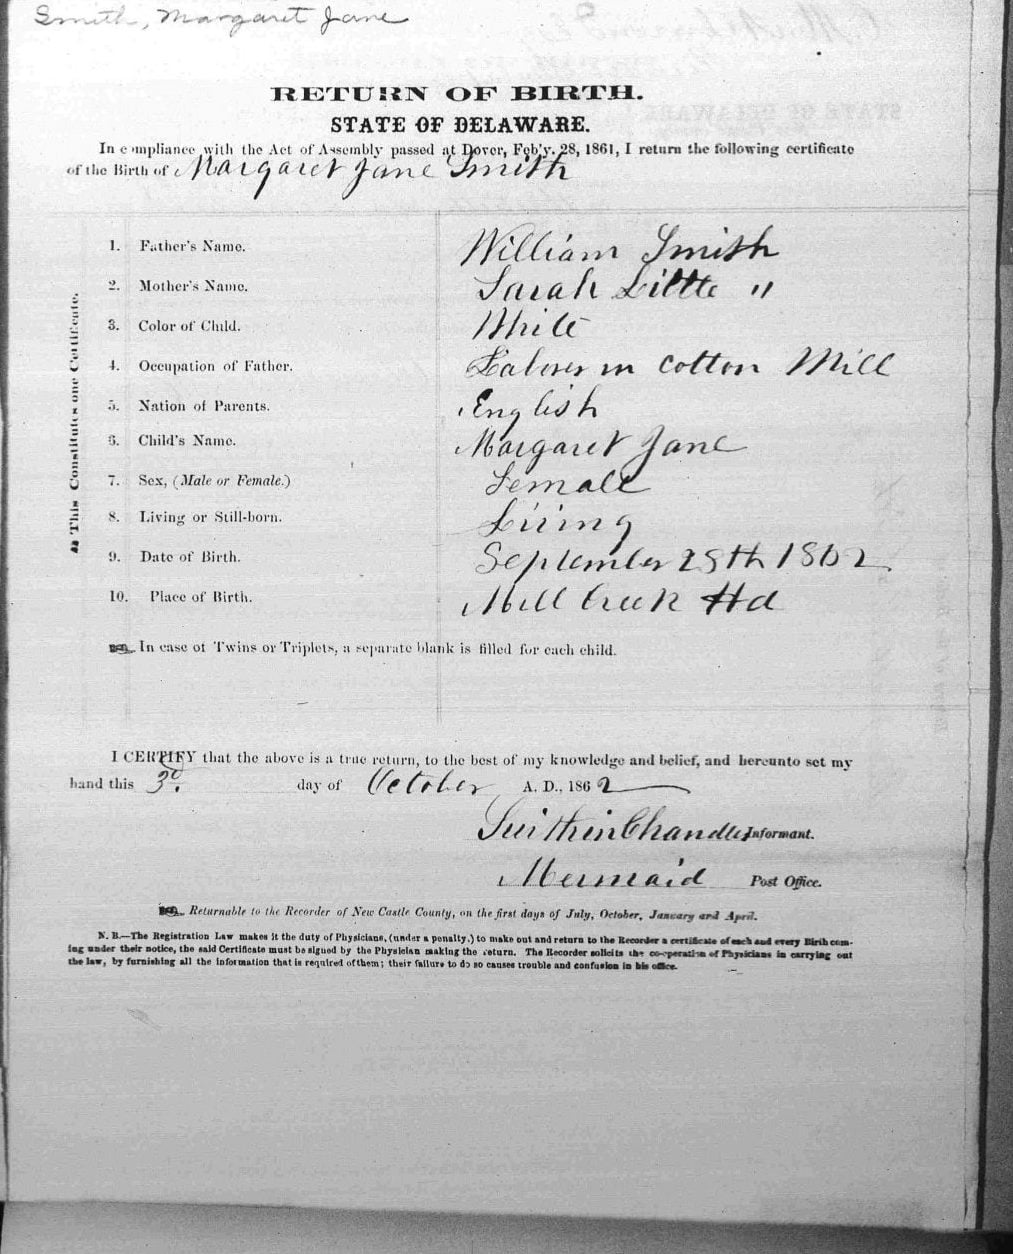 Smith, Margaret Jane
RETURN OF BIRTH.
STATE OF DELAWARE.
In compliance with the Act of Assembly passed at Dover, Feb'y. 28, 1861, I return the following certificate
of the Birth of Margaret Jane Smith
This Constitutes one Certificate.
1. Father's Name. William Smith
2. Mother's Name. Sarah Little "
3. Color of Child. White
4. Occupation of Father. Laborer in Cotton Mill
5. Nation of Parents. English
6. Child's Name. Margaret Jane
7. Sex, (Male or Female.) Female
8. Living or Still-born. Living
9. Date of Birth. September 28th 1862
10. Place of Birth. Mill Creek Hd
In case of Twins or Triplets, a separate blank is filled for each child.
I CERTIFY that the above is a true return, to the best of my knowledge and belief, and hereunto set my
hand this 3d. day of October A. D., 1862
Swithin Chandler Informant.
Mermaid Post Office.
Returnable to the Recorder of New Castle County, on the first days of July, October, January and April.
N. B.—The Registration Law makes it the duty of Physicians, (under a penalty,) to make out and return to the Recorder a certificate of each and every Birth com-
ing under their notice, the said Certificate must be signed by the Physician making the return. The Recorder solicits the co-operation of Physicians in carrying out
the law, by furnishing all the information that is required of them; their failure to do so causes trouble and confusion in his office.